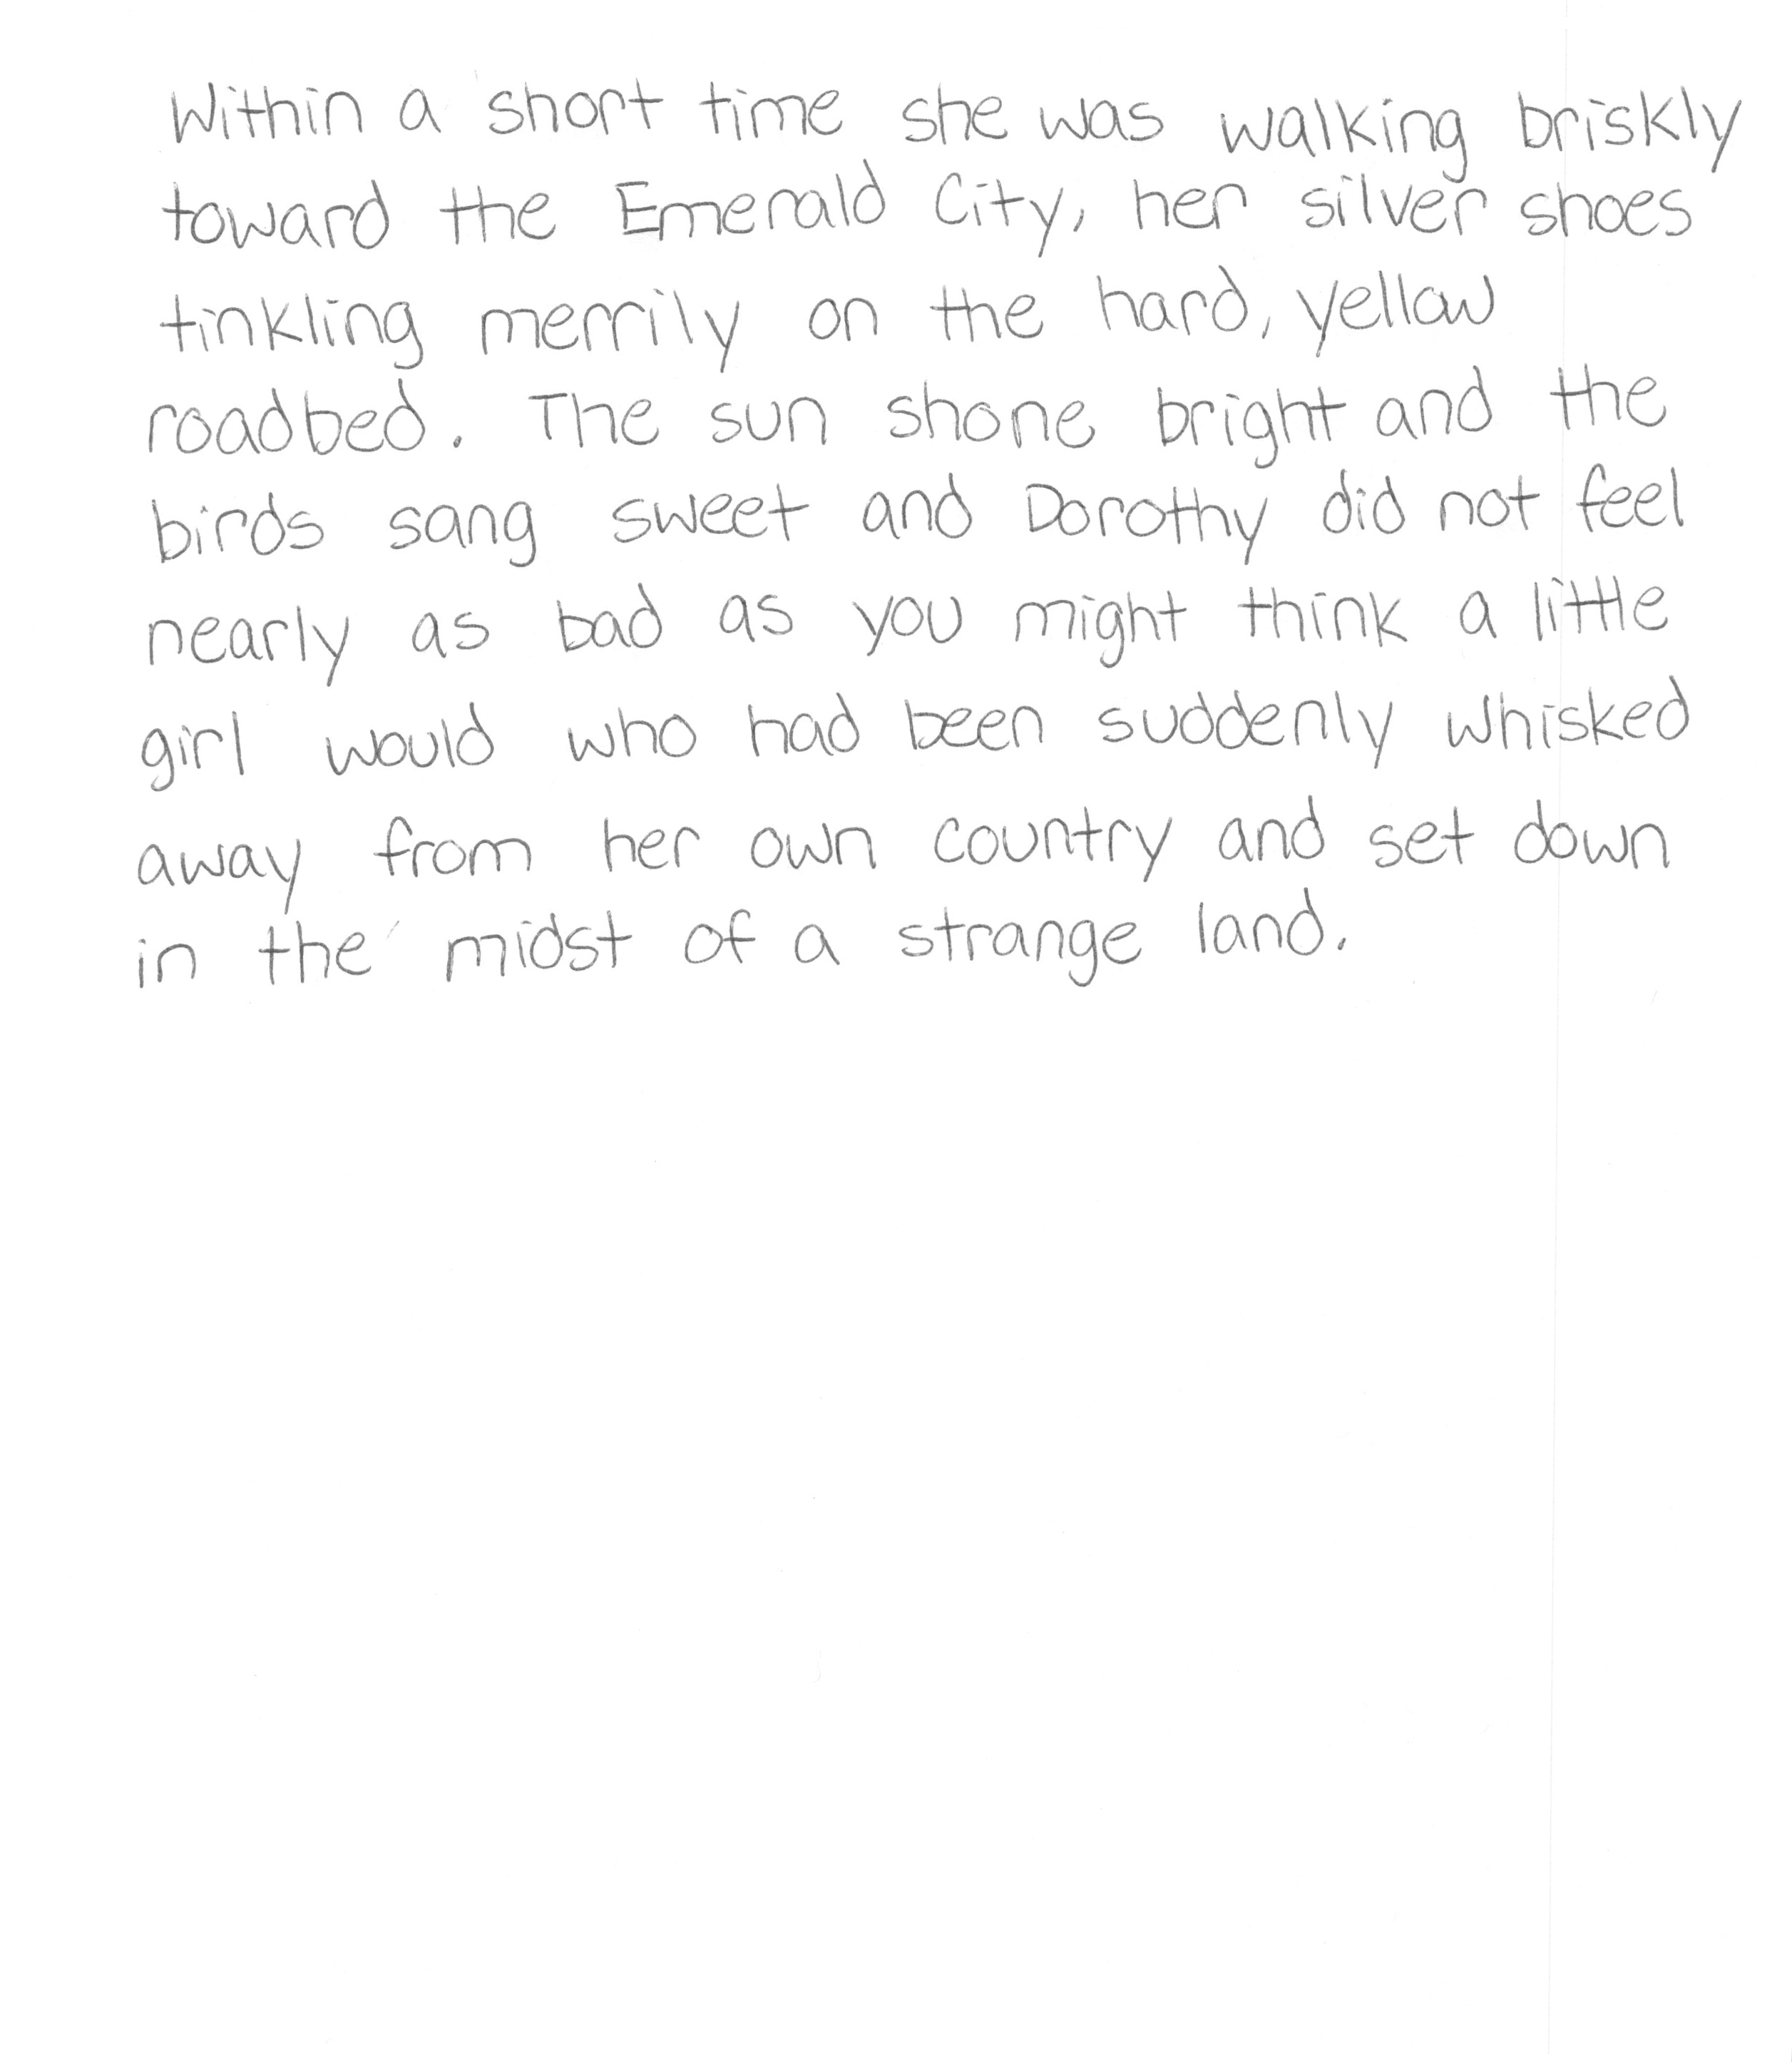 Within a short time she was walking briskly
toward the Emerald City, her silver shoes
tinkling merrily on the hard, yellow
roadbed. The sun shone bright and the
birds sang sweet and Dorothy did not feel
nearly as bad as you might think a little
girl would who had been suddenly whisked
away from her own country and set down
in the midst of a strange land.